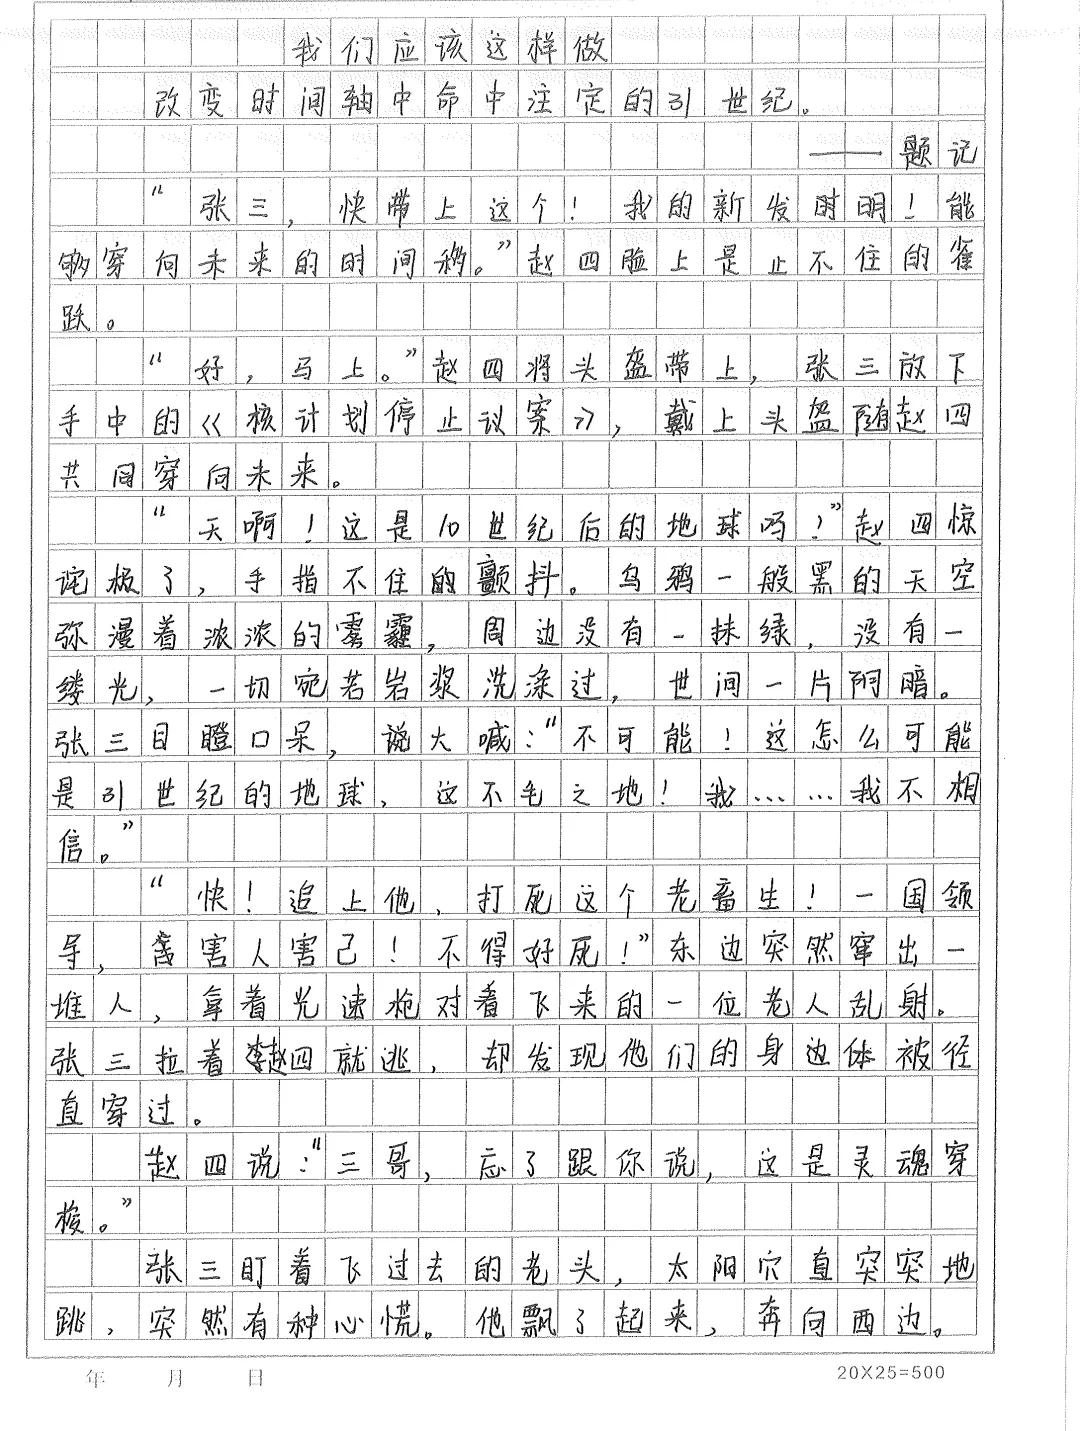 我们应该这样做
改变时间轴中命中注定的31世纪。
——题记
“张三，快带上这个！我的新发时明！能
够穿向未来的时间秽。”赵四脸上是止不住的雀
跃。
“好，马上。”赵四将头盔带上，张三放下
手中的《核计划停止议案》，戴上头盔随赵四
共同穿向未来。
“天啊！这是10世纪后的地球吗？”赵四惊
诧极了，手指不住的颤抖。乌鸦一般黑的天空
弥漫着浓浓的雾霾，周边没有一抹绿，没有一
缕光，一切宛若岩浆洗涤过，世间一片阴暗。
张三目瞪口呆，说大喊：“不可能！这怎么可能
是31世纪的地球，这不毛之地！我……我不相
信。”
“快！追上他，打死这个老畜生！一国领
导，害人害己！不得好死！”东边突然窜出一
堆人，拿着光速枪对着飞来的一位老人乱射。
张三拉着赵四就逃，却发现他们的身边体被径
直穿过。
赵四说：“三哥，忘了跟你说，这是灵魂穿
梭。”
张三盯着飞过去的老头，太阳穴直突突地
跳，突然有种心慌。他飘了起来，奔向西边。
年 月 日
20X25=500